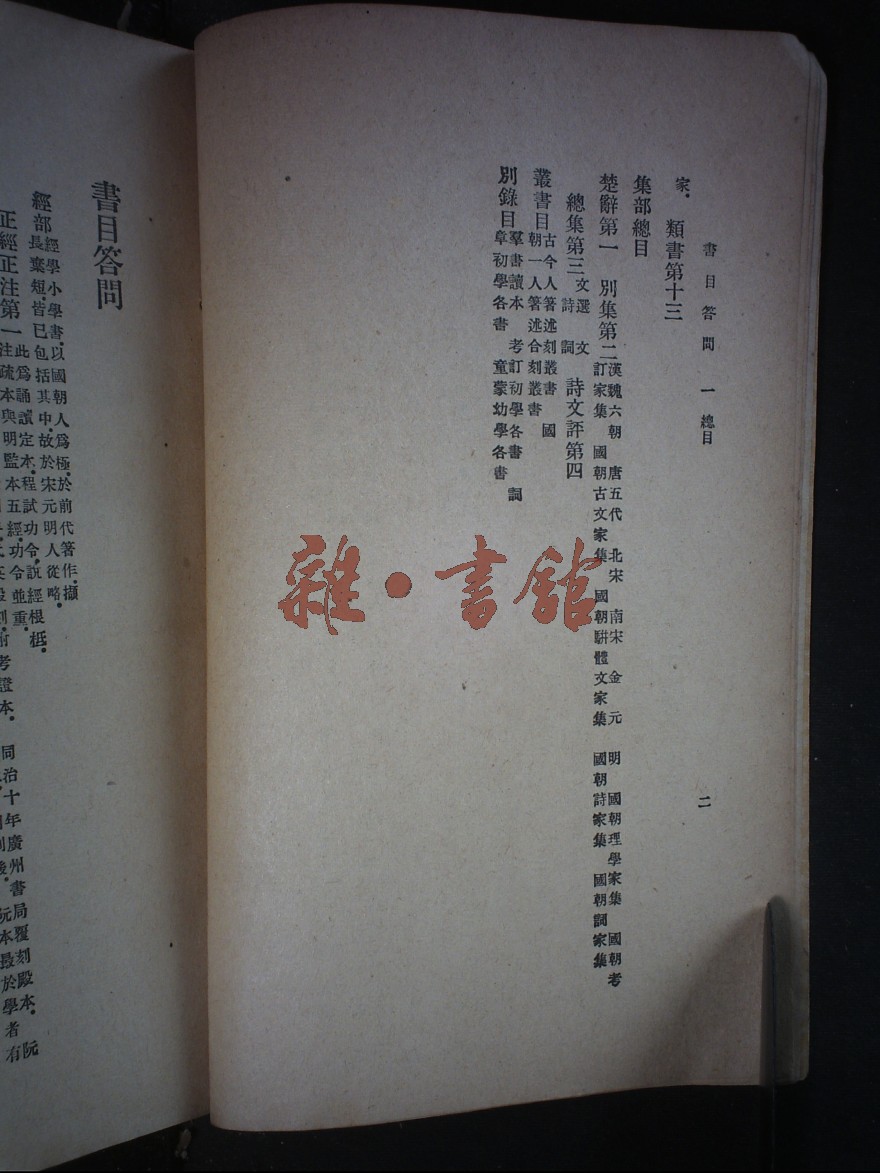 書目答問 一 總目 二
家. 類書第十三
集部總目
楚辭第一 別集第二漢魏六朝 唐五代 北宋 南宋 金元 明 國朝理學家集 國朝考
訂家集 國朝古文家集 國朝駢體文家集 國朝詩家集 國朝詞家集
總集第三文選 文
詩 詞 詩文評第四
叢書目古今人箸述刻叢書 國
朝一人箸述合刻叢書
別錄目羣書讀本 考訂初學各書 詞
章初學各書 童蒙幼學各書
雜·書館
書目答問
經部經學小學書.以國朝人為極.於前代箸作.擷
長棄短.皆已包括其中.故於宋元明人從略.
正經正注第一此為誦讀定本.程試功令.說經根柢.
注疏本與明監本五經.功令並重.